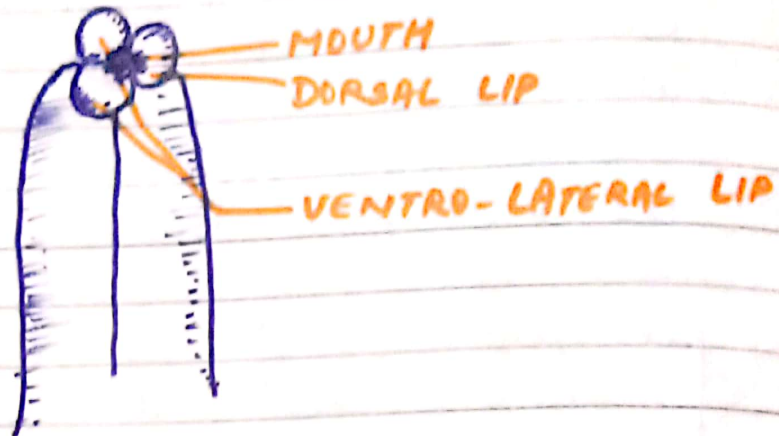 MOUTH
DORSAL LIP
VENTRO-LATERAL LIP